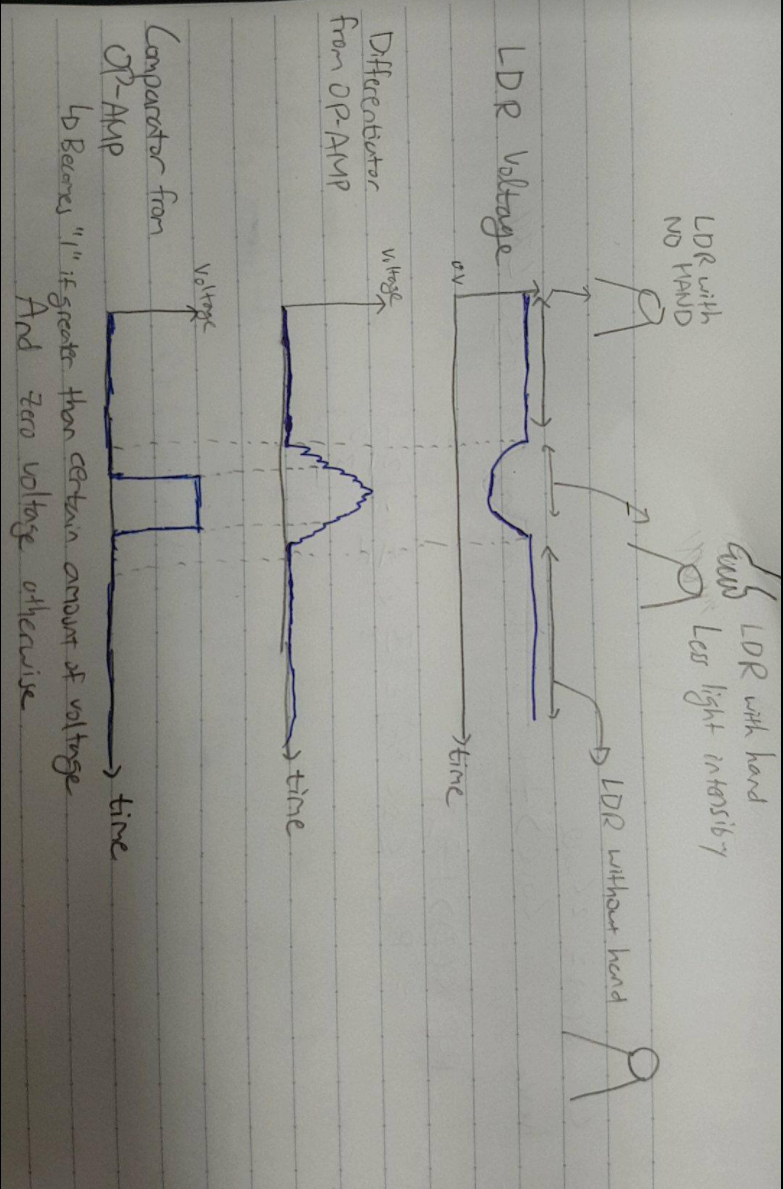 LDR with
NO HAND
LDR with hand
Less light intensity
LDR without hand
LDR Voltage
0V
time
Differentiator
from OP-AMP
Voltage
time
Comparator from
OP-AMP
Voltage
time
Becomes "1" if greater than certain amount of voltage
And Zero voltage otherwise